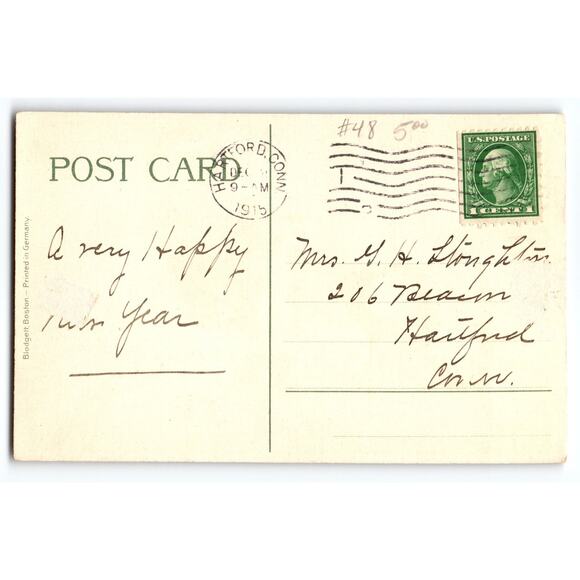 #48 5.00
U.S. POSTAGE
1 CENT 1
POST CARD
HARTFORD, CONN
DEC
9-AM
1915
A very Happy
New Year
Mrs. G. H. Stoughton
206 Beacon
Hartford
Conn.
Blodgett, Boston – Printed in Germany.